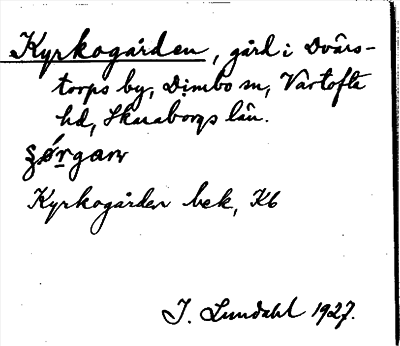 Kyrkogården, gård i Dvärs-
torps by, Dimbo sn, Vartofta
hd, Skaraborgs län.
Kyrkogården bek, Kb
I. Lundahl 1927.